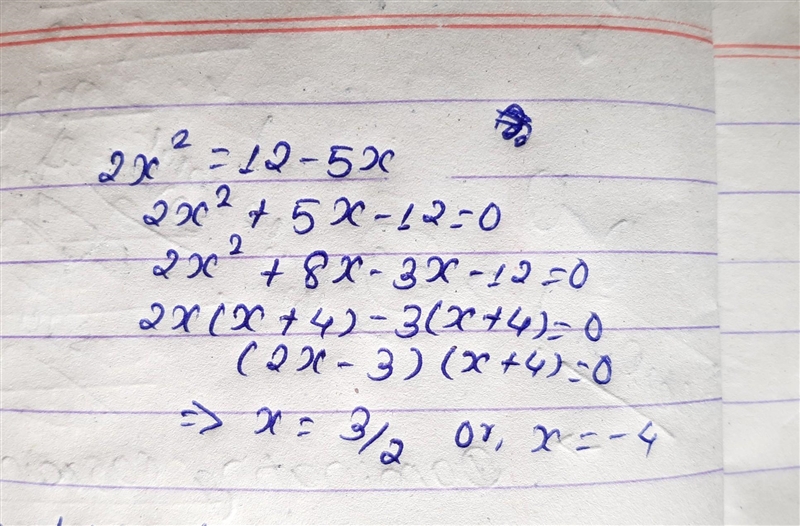 2x² = 12 - 5x
2x² + 5x - 12 = 0
2x² + 8x - 3x - 12 = 0
2x(x + 4) - 3(x + 4) = 0
(2x - 3) (x + 4) = 0
⇒ x = 3/2 or, x = -4